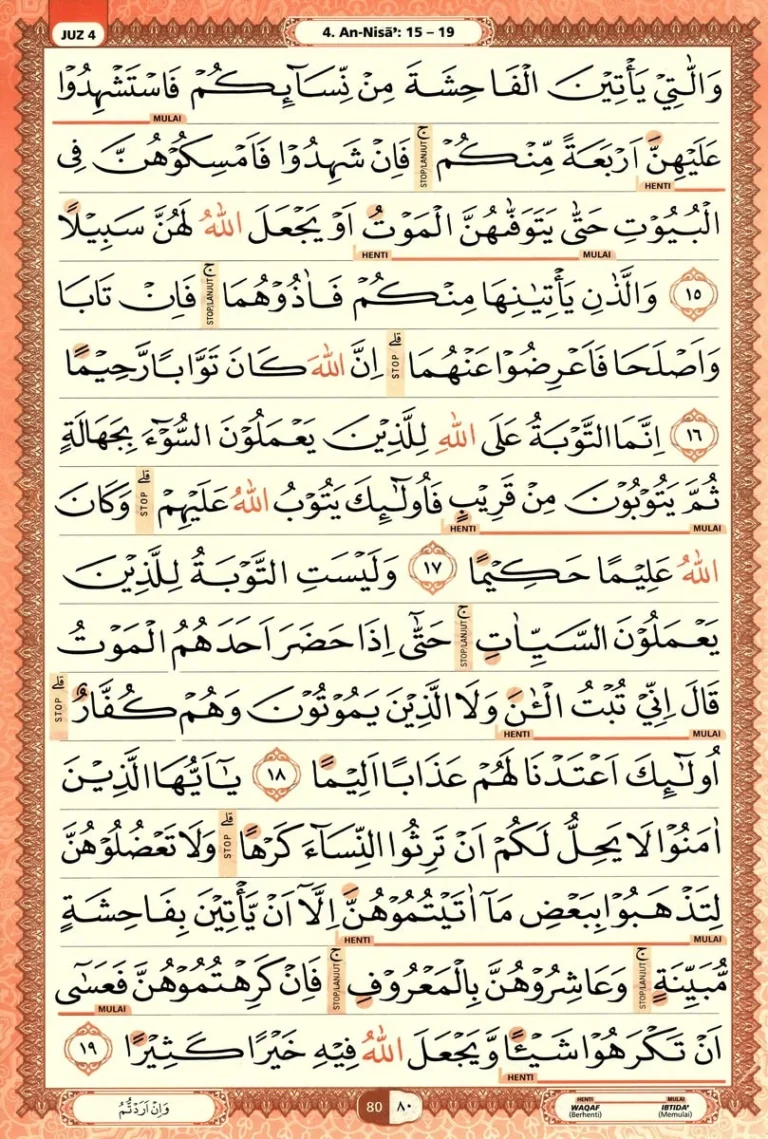 JUZ 4
4. An-Nisā’: 15 – 19
وَالّٰتِيْ يَأْتِيْنَ الْفَاحِشَةَ مِنْ نِّسَاۤىِٕكُمْ فَاسْتَشْهِدُوْا
MULAI
عَلَيْهِنَّ اَرْبَعَةً مِّنْكُمْ ۚ فَاِنْ شَهِدُوْا فَاَمْسِكُوْهُنَّ فِى
STOP/LANJUT
HENTI
الْبُيُوْتِ حَتّٰى يَتَوَفّٰىهُنَّ الْمَوْتُ اَوْ يَجْعَلَ اللّٰهُ لَهُنَّ سَبِيْلًا
MULAI HENTI
١٥ وَالَّذٰنِ يَأْتِيٰنِهَا مِنْكُمْ فَاٰذُوْهُمَا ۚ فَاِنْ تَابَا
STOP/LANJUT
وَاَصْلَحَا فَاَعْرِضُوْا عَنْهُمَا ۗ اِنَّ اللّٰهَ كَانَ تَوَّابًا رَّحِيْمًا
STOP
١٦ اِنَّمَا التَّوْبَةُ عَلَى اللّٰهِ لِلَّذِيْنَ يَعْمَلُوْنَ السُّوْۤءَ بِجَهَالَةٍ
ثُمَّ يَتُوْبُوْنَ مِنْ قَرِيْبٍ فَاُولٰۤىِٕكَ يَتُوْبُ اللّٰهُ عَلَيْهِمْ ۗ وَكَانَ
STOP
MULAI HENTI
اللّٰهُ عَلِيْمًا حَكِيْمًا ١٧ وَلَيْسَتِ التَّوْبَةُ لِلَّذِيْنَ
يَعْمَلُوْنَ السَّيِّاٰتِ ۚ حَتّٰىٓ اِذَا حَضَرَ اَحَدَهُمُ الْمَوْتُ
STOP/LANJUT
قَالَ اِنِّيْ تُبْتُ الْـٰٔنَ وَلَا الَّذِيْنَ يَمُوْتُوْنَ وَهُمْ كُفَّارٌ ۗ
STOP
MULAI HENTI
اُولٰۤىِٕكَ اَعْتَدْنَا لَهُمْ عَذَابًا اَلِيْمًا ١٨ يٰٓاَيُّهَا الَّذِيْنَ
اٰمَنُوْا لَا يَحِلُّ لَكُمْ اَنْ تَرِثُوا النِّسَاۤءَ كَرْهًا ۗ وَلَا تَعْضُلُوْهُنَّ
STOP
لِتَذْهَبُوْا بِبَعْضِ مَآ اٰتَيْتُمُوْهُنَّ اِلَّآ اَنْ يَّأْتِيْنَ بِفَاحِشَةٍ
MULAI HENTI
مُّبَيِّنَةٍ ۚ وَعَاشِرُوْهُنَّ بِالْمَعْرُوْفِ ۚ فَاِنْ كَرِهْتُمُوْهُنَّ فَعَسٰٓى
STOP/LANJUT STOP/LANJUT
MULAI
اَنْ تَكْرَهُوْا شَيْـًٔا وَّيَجْعَلَ اللّٰهُ فِيْهِ خَيْرًا كَثِيْرًا ١٩
HENTI
وَاِنْ اَرَدْتُّمُ
80 ٨٠
HENTI MULAI
WAQAF IBTIDA'
(Berhenti) (Memulai)